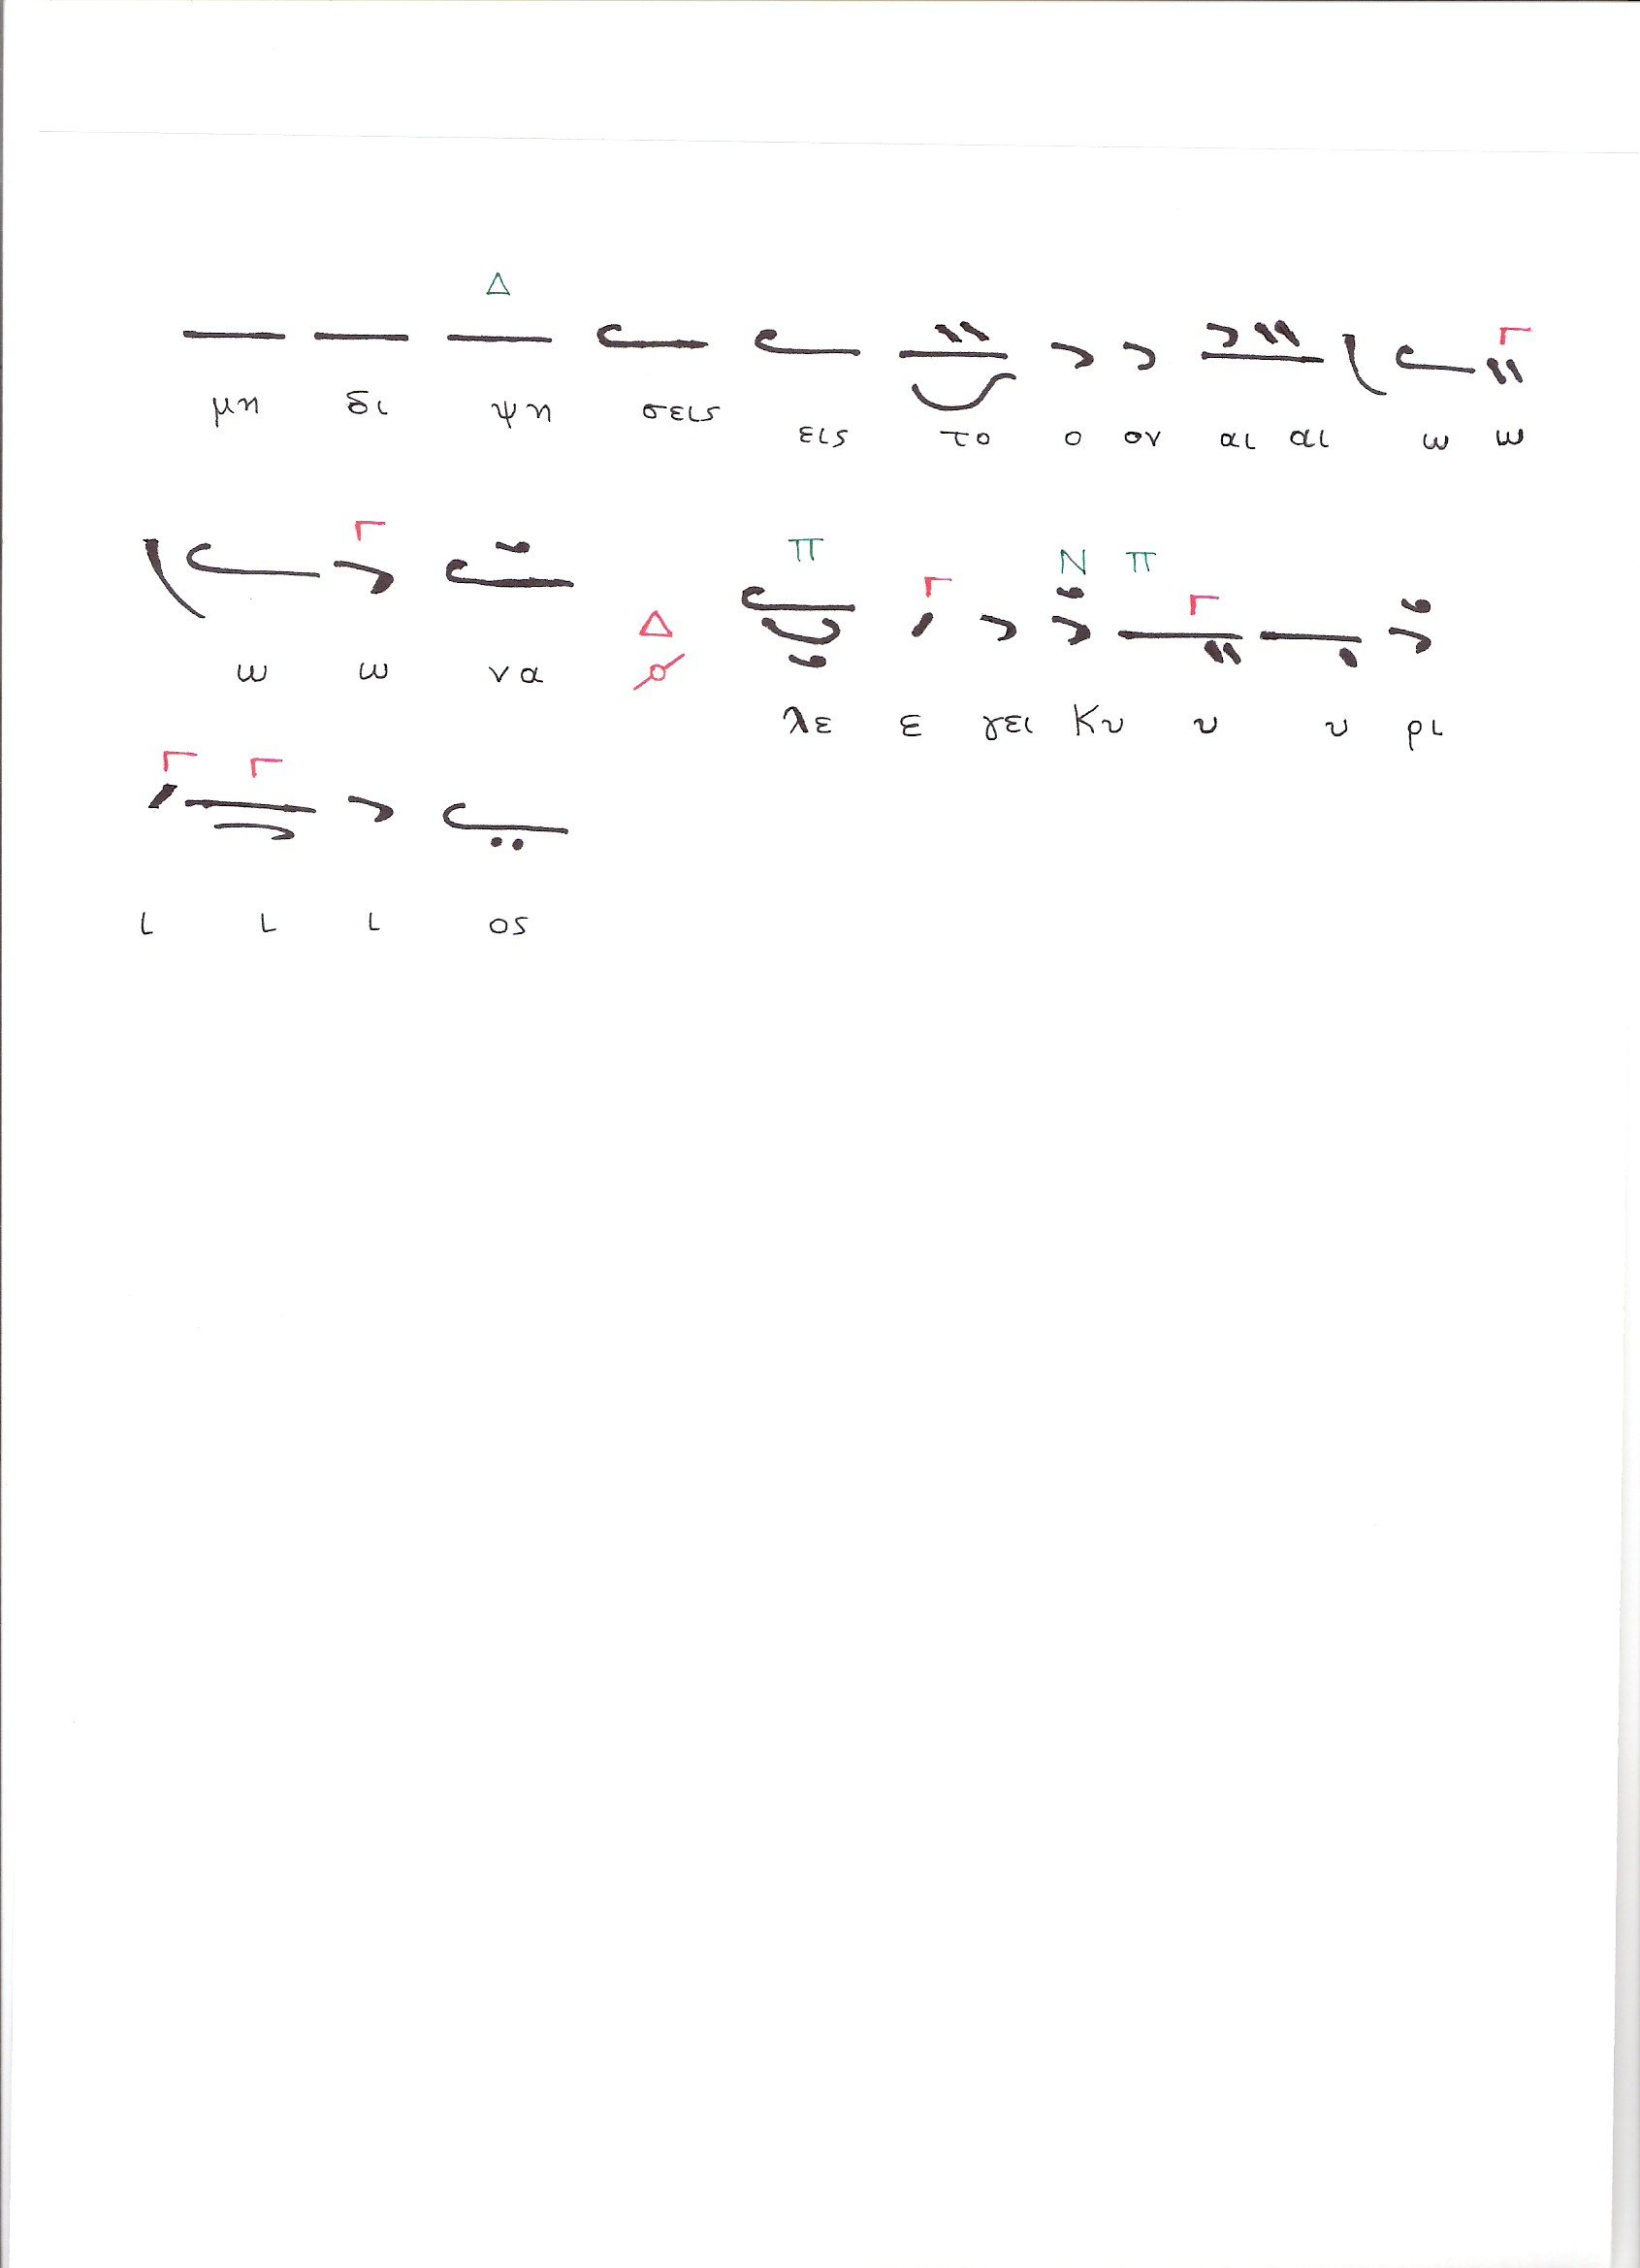 Δ
μη δι ψη σεις εις το ο ον αι αι ω ω
Γ
Γ
ω ω να Δ
π Γ Ν π Γ
λε ε γει Κυ υ υ ρι
Γ Γ
ι ι ι ος